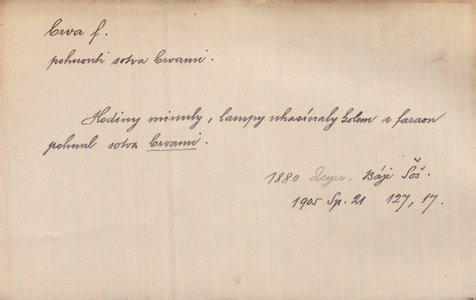 brva f.
pohnouti sotva brvami.
Hodiny minuly, lampy uhasínaly kolem a faraon
pohnul sotva brvami.
1880 Zeyer. Báje Šoš.
1905 Sp. 21 127, 17.